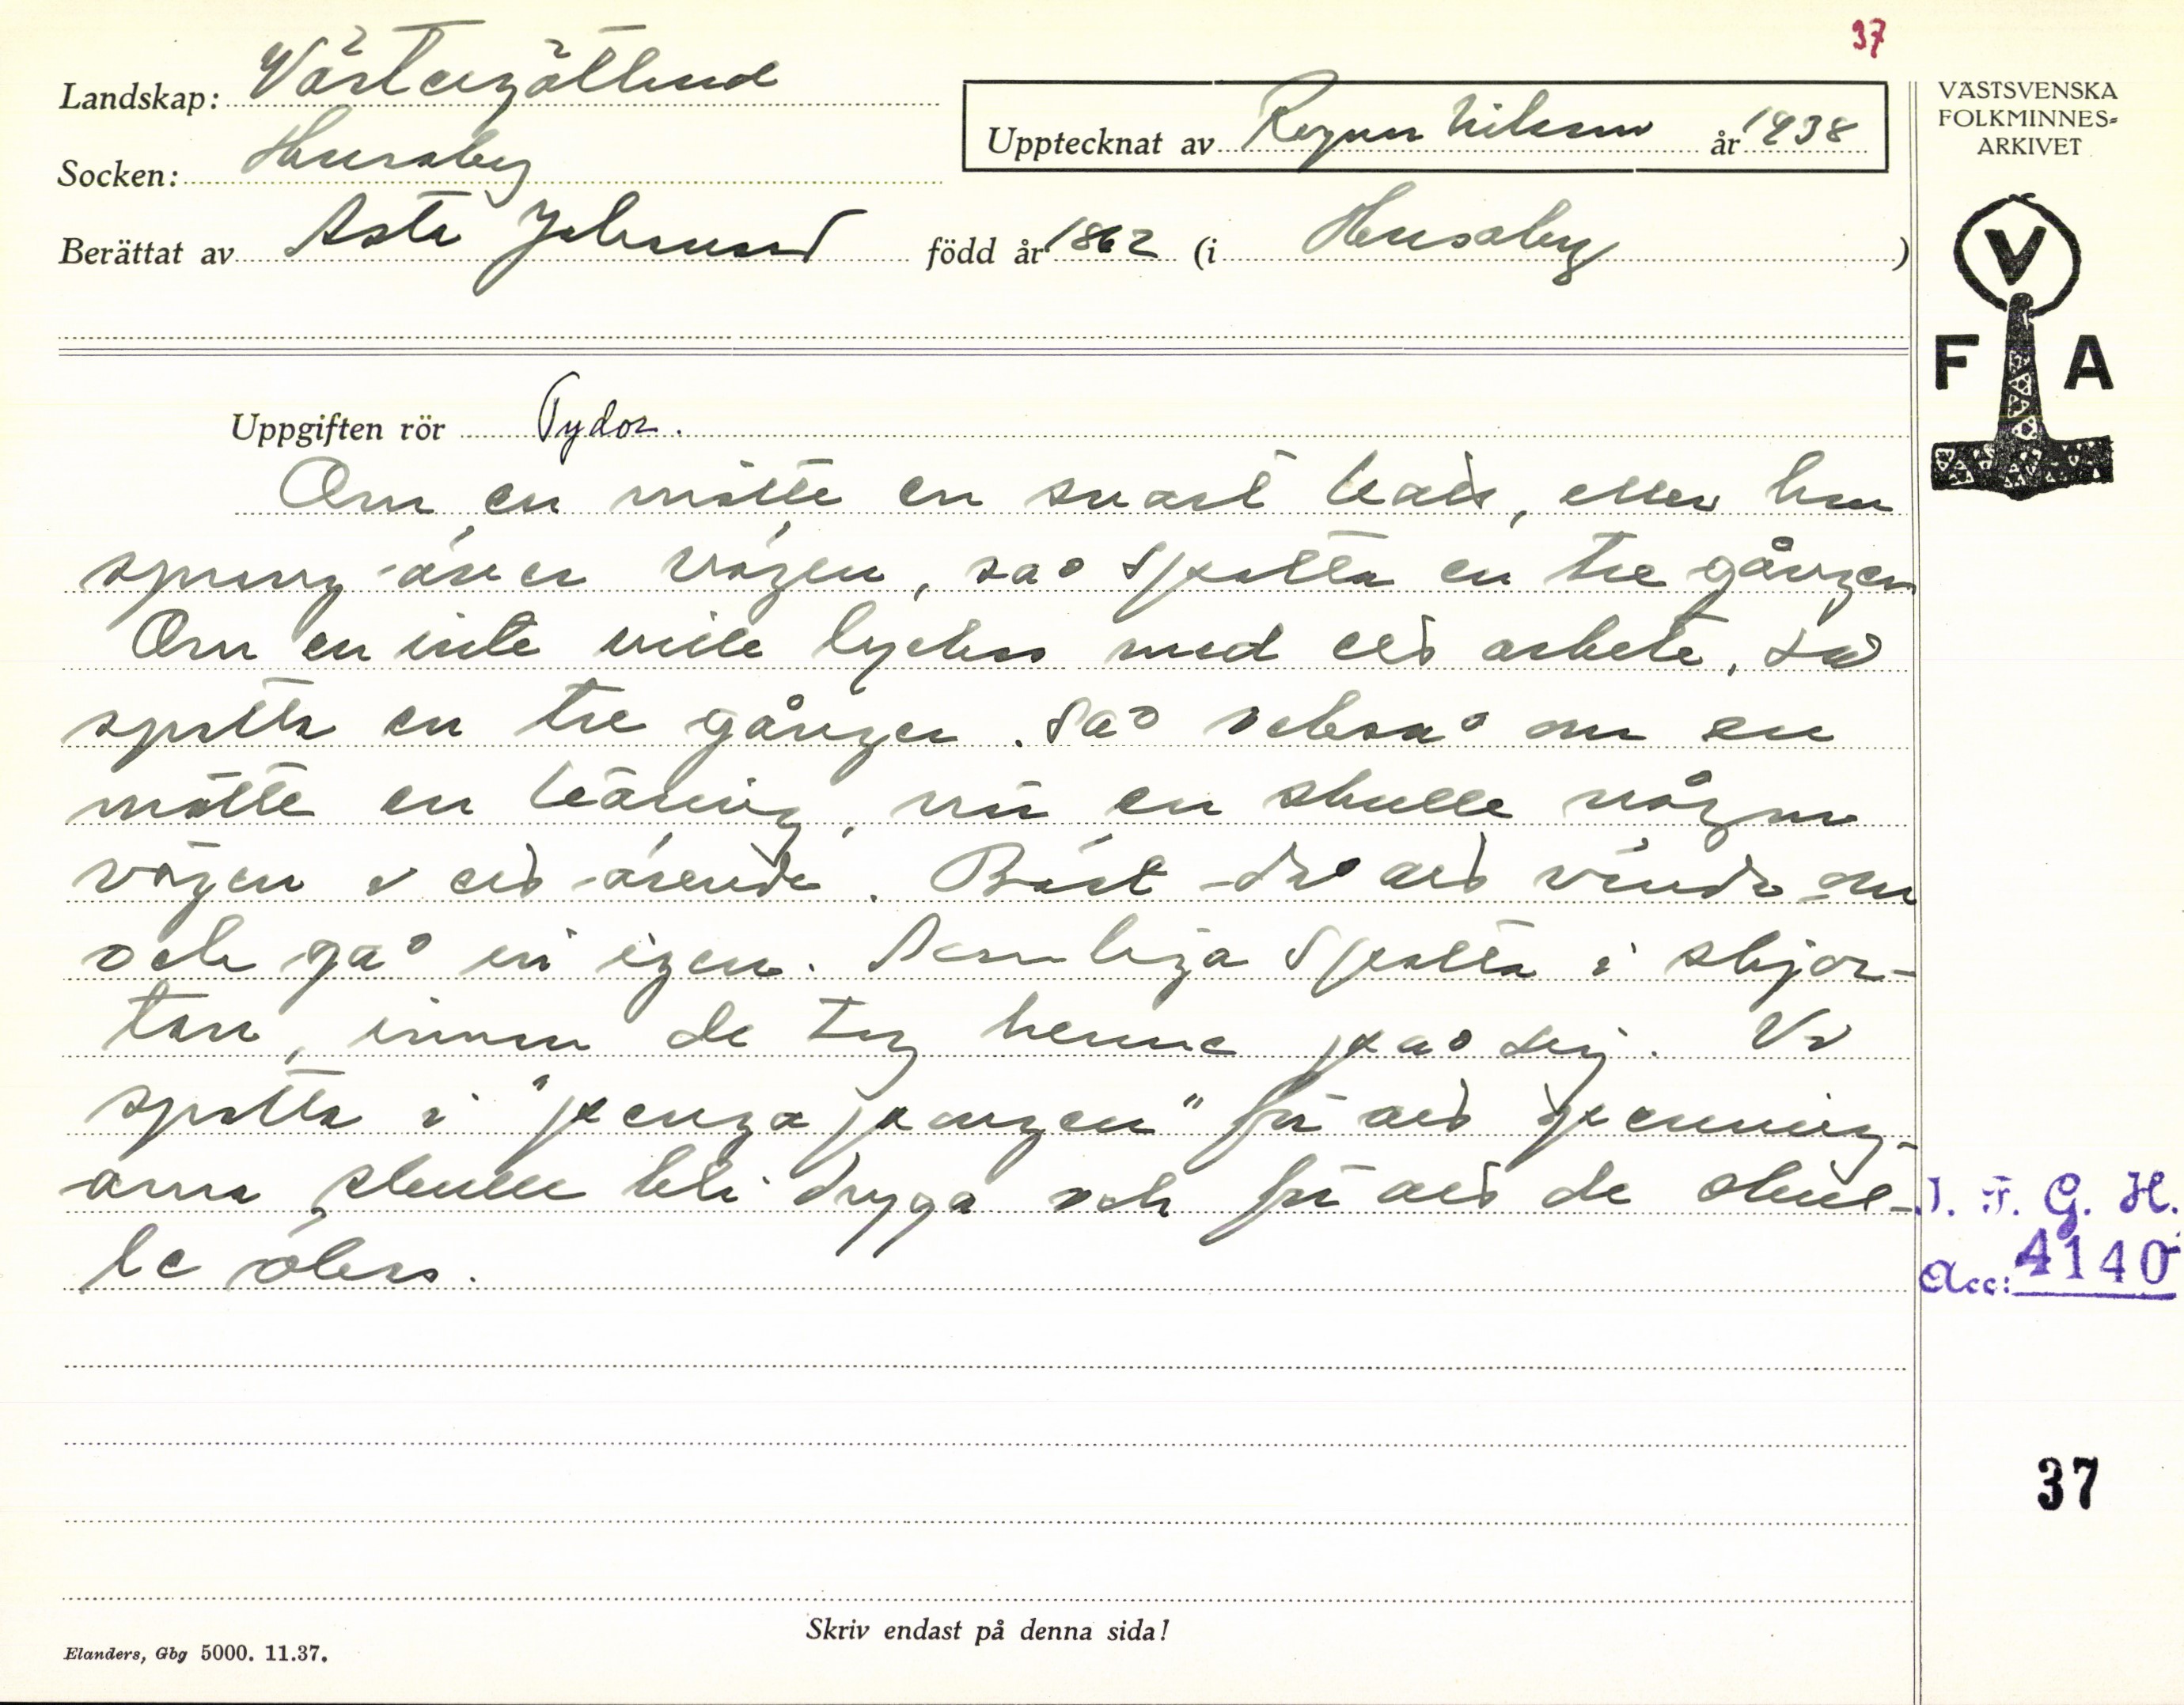 37
Landskap: Västergötland
Upptecknat av Ragnar Nilsson år 1938
VÄSTSVENSKA
FOLKMINNES-
ARKIVET
Socken: Husaby
Berättat av Asta Johansson född år 1862 (i Husaby)
V
F A
Uppgiften rör Tydor.
Om en mötte en svart katt, eller hon
sprang över vägen, så spotta en tre gånger
Om en inte ville lyckas med ett arbete, så
spotta en tre gånger. Så också om en
mötte en käring, när en skulle någon
vägen i ett ärende. Bäst då att vända om
och gå in igen. Somliga spotta i skjor-
tan, innan de tog henne på sig. Vi
spotta i "pengapungen" för att penning-
arna skulle bli dryga och för att de skul-
le ökas.
I. F. G. H.
Acc: 4140
37
Skriv endast på denna sida!
Elanders, Gbg 5000. 11.37.